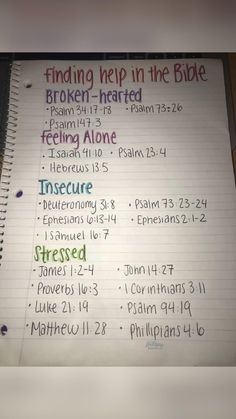 Finding help in the Bible
Broken-hearted
• Psalm 34:17-18 • Psalm 73:26
• Psalm 147:3
Feeling Alone
• Isaiah 41:10 • Psalm 23:4
• Hebrews 13:5
Insecure
• Deuteronomy 31:8 • Psalm 73:23-24
• Ephesians 6:13-14 • Ephesians 2:1-2
• 1 Samuel 16:7
Stressed
• James 1:2-4 • John 14:27
• Proverbs 16:3 • 1 Corinthians 3:11
• Luke 21:19 • Psalm 94:19
• Matthew 11:28 • Phillipians 4:6